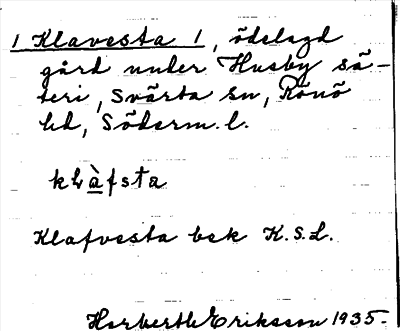 1 Klavesta 1, ödelagd
gård under Husby sä-
teri, Svärta sn, Rönö
hd, Söderm. l.
klàfsta
Klafvesta bek K.S.L.
Herbert Eriksson 1935.